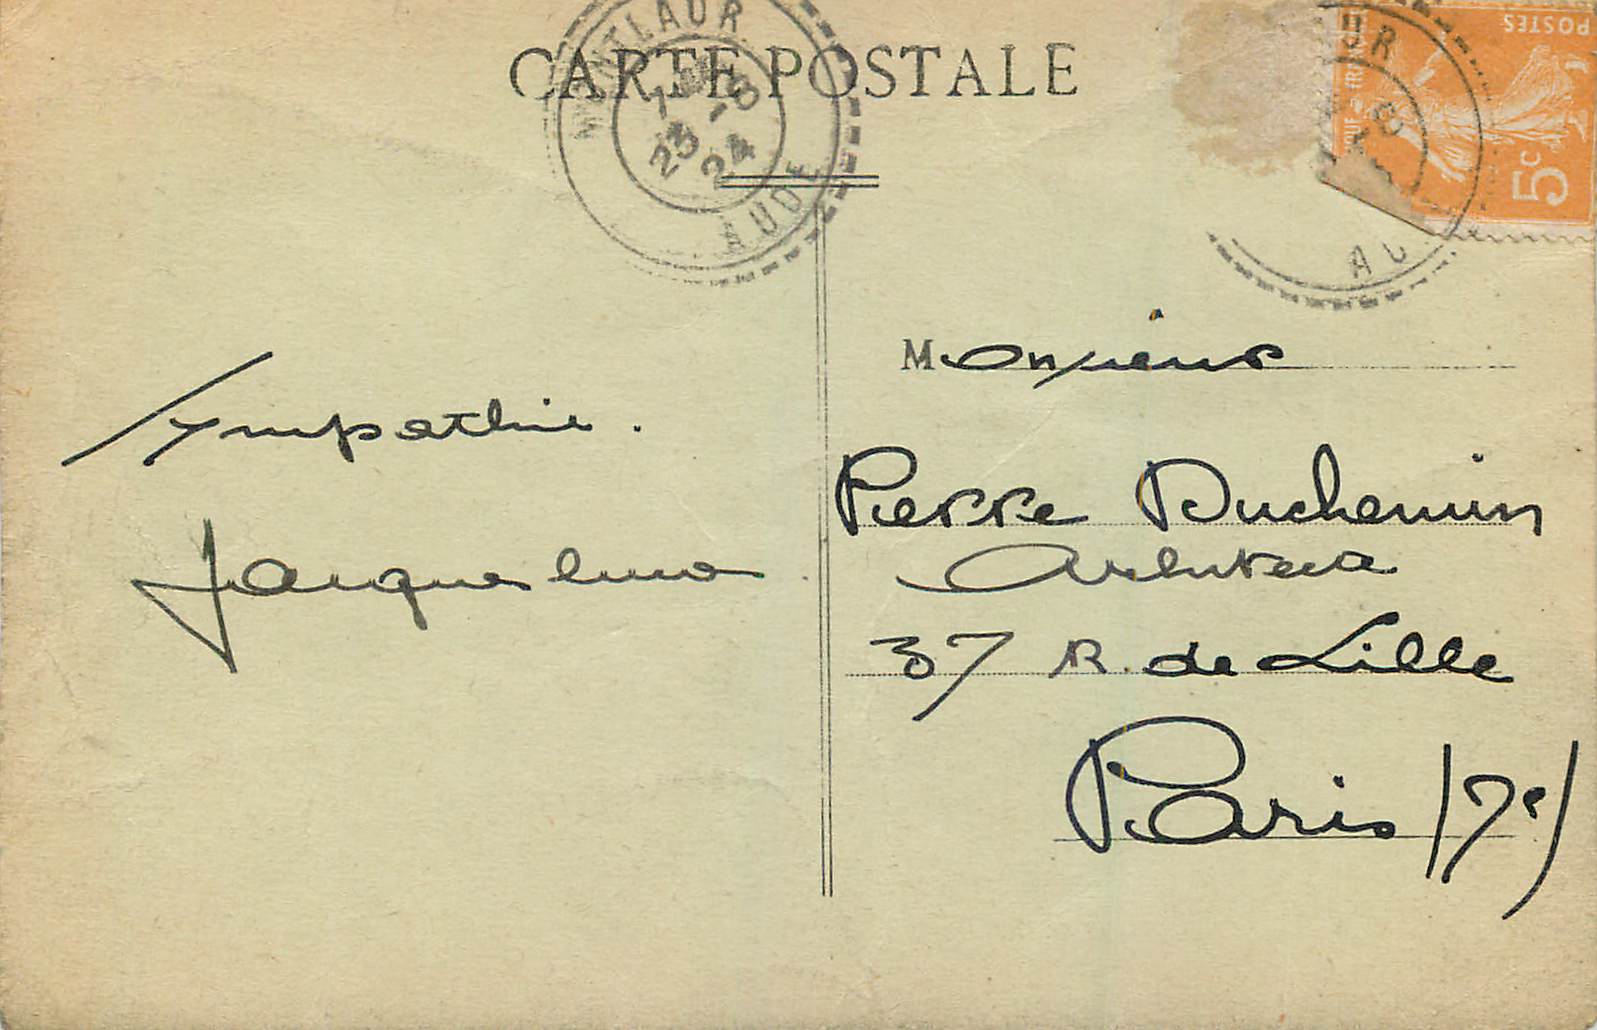 CARTE POSTALE
MONTLAUR
23 -8
24
AUDE
UR
-8
AU
POSTES
5c
Monsieur
Sympathie.
Pierre Duchemin
Architecte
Jacqueline
37 R. de Lille
Paris (7e)